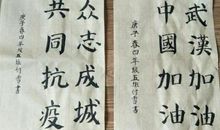 武漢加油
中國加油
庚子春四年级五班付書
众志成城
共同抗疫
庚子春四年级五班付書